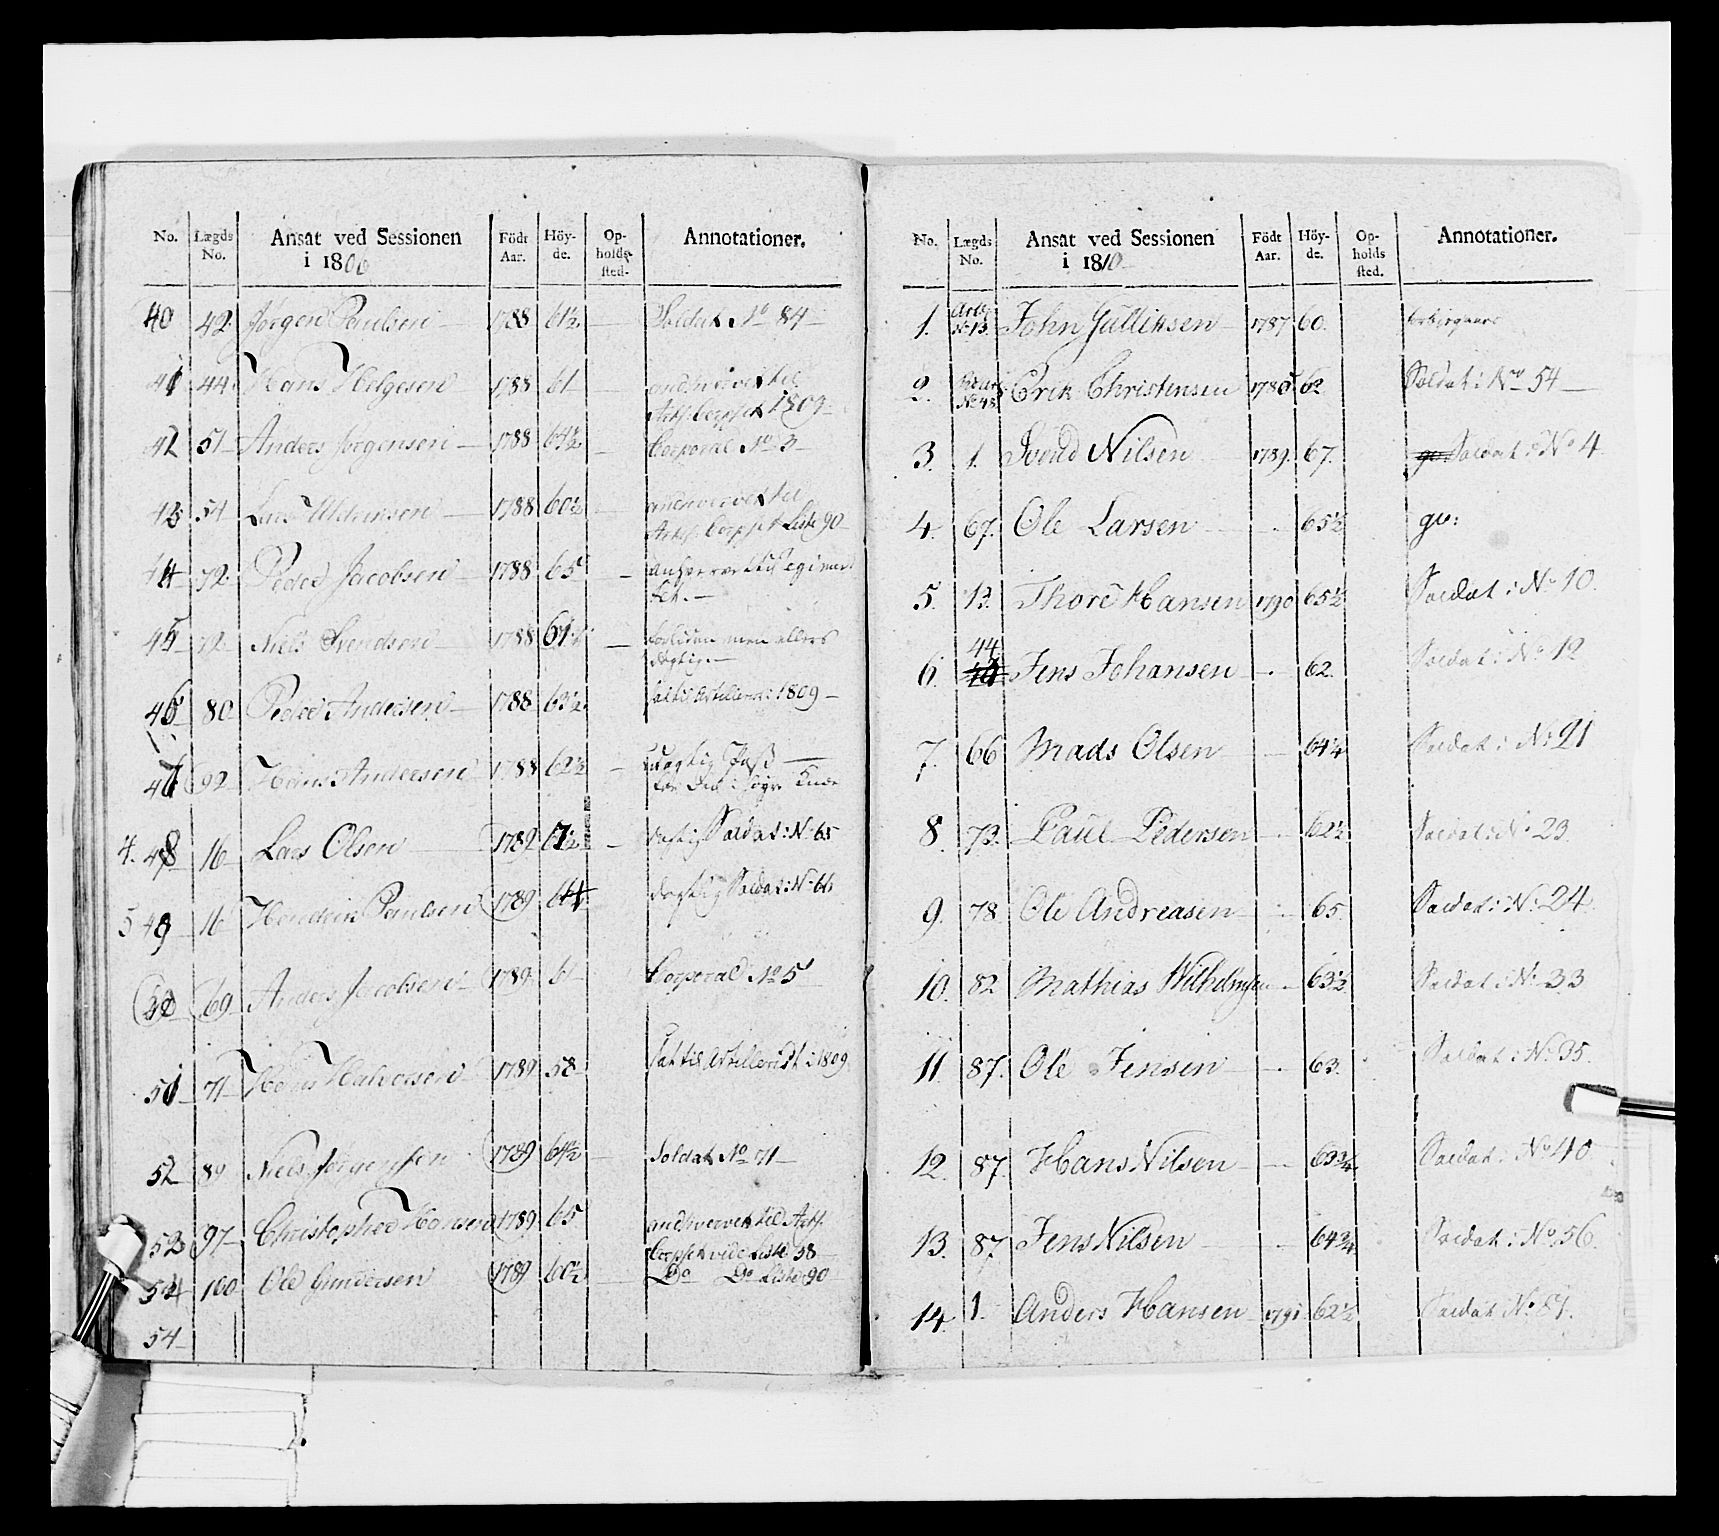 No. Lægds No. Ansat ved Sessionen i 180 Födt Aar. Höyde. Opholds sted. Annotationer.
40 42 Jørgen Paulsen 1788 61½ Soldat No 84
41 44 Hans Helgesen 1788 61 andhvervet til
Art: Corpset 1809
42 51 Anders Jørgensen 1788 64½ Corporal No 3
43 54 Lars 1788 60½ andhvervet til
Art: Corpset Liste 90
44 72 Peder Jacobsen 1788 65
45 72 Niels Svendsen 1788 61½ forliden men ellers
dygtig
46 80 Peder Andersen 1788 63½ sat til Artilleriet 1809
47 92 Hans Andersen 1788 62½ udygtig Pass
for Den i søgr Knæ
4. 48 16 Lars Olsen 1789 dygtig Soldat: No 65
5 49 16 Hendrik Paulsen 1789 64 dygtig Soldat: No 66
50 69 Anders Jacobsen 1789 61 Corporal No 5
51 71 Hans Halvorsen 1789 58 sat til Artilleriet i 1809
52 89 Niels Jørgensen 1789 64½ Soldat No 71
53 97 Christopher Hansen 1789 65 andhvervet til Art:
Corpset vide Liste 58
54 100 Ole Gundersen 1789 60½ Do Do Liste 90
54
No. Lægds No. Ansat ved Sessionen i 1810 Födt Aar. Höyde. Opholds sted. Annotationer.
1. No 13. John Gulliksen 1787 60.
2. No 48 Erik Christensen 1786 62 Soldat: No 54
3. 1. Svend Nilsen 1789. 67. Soldat: No 4
4. 67. Ole Larsen 65½ gv:
5. 13. Thore Hansen 1790 65½ Soldat: No 10.
6. 44. Jens Johansen 62. Soldat: No 12
7. 66 Mads Olsen 64¼ Soldat: No 21
8. 73. Paul Pedersen 62½ Soldat: No 23.
9. 78. Ole Andreasen 65. Soldat: No 24.
10. 82 Mathias Wilhelmsen 63½ Soldat: No 33
11. 87. Ole Jensen 63. Soldat: No 35.
12. 87. Hans Nilsen 63¾ Soldat: No 40
13. 87 Jens Nilsen 64¾ Soldat: No 56.
14. 1. Anders Hansen 1791 62½ Soldat No 81.